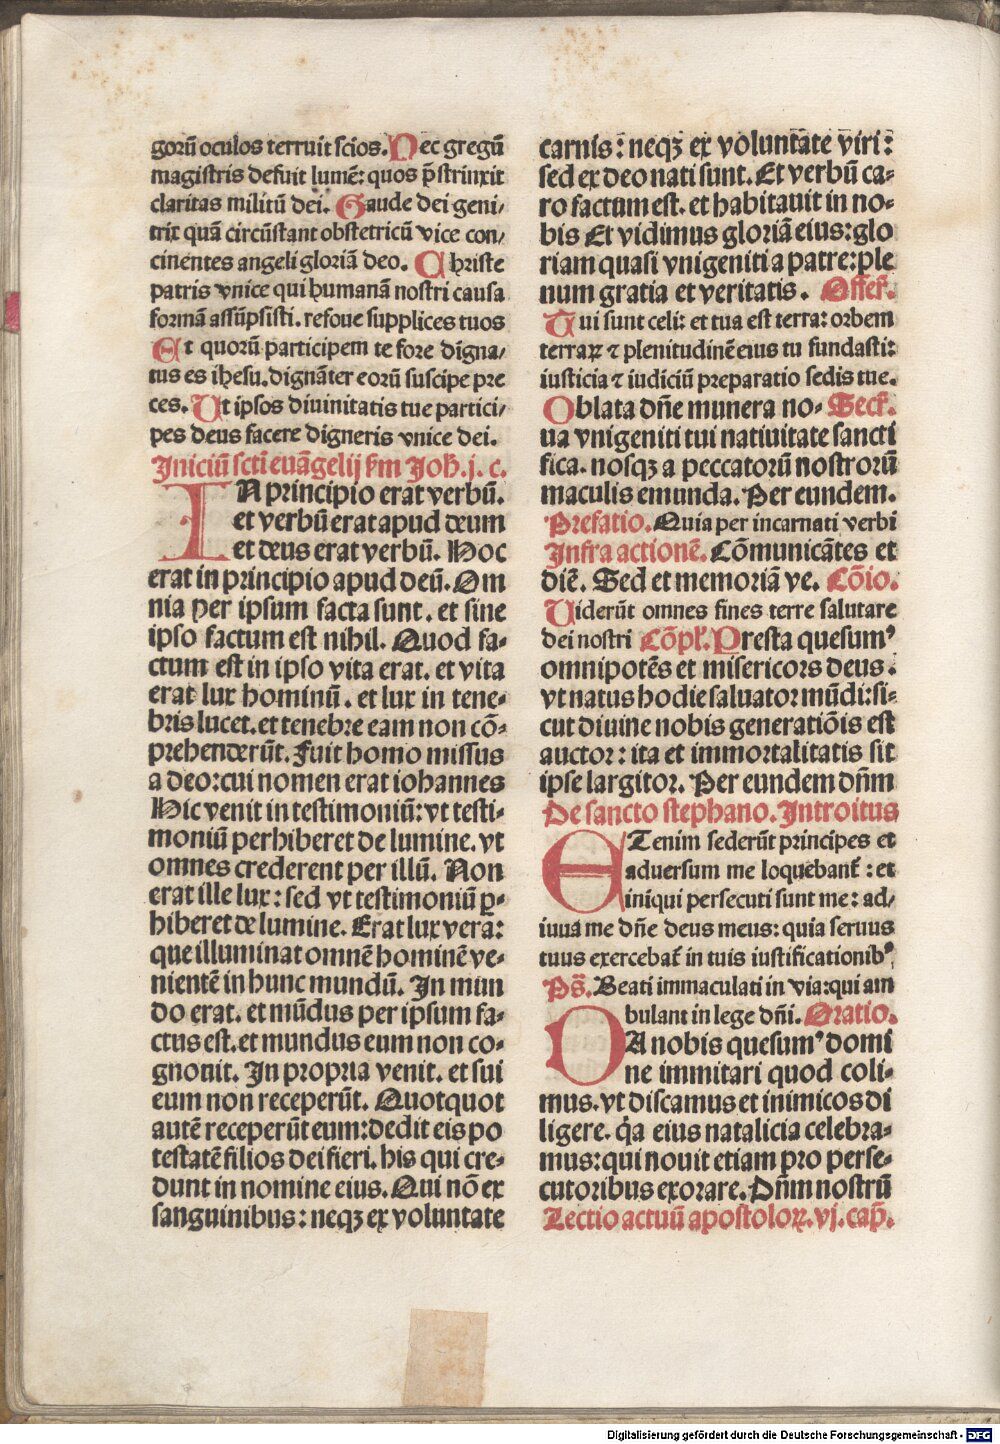 gorū oculos terruit scios. Nec gregū
magistris defuit lumē: quos p̄strinxit
claritas militū dei. Gaude dei geni⸗
trix quā circūstant obstetricū vice con⸗
cinentes angeli gloriā deo. Christe
patris vnice qui humanā nostri causa
formā assūpsisti. refoue supplices tuos
Et quorū participem te fore digna⸗
tus es ihesu. dignāter eorū suscipe pre
ces. Ut ipsos diuinitatis tue partici⸗
pes deus facere digneris vnice dei.
Iniciū scti euāgelij ẜm Joh̄. j. c.
IN principio erat verbū.
et verbū erat apud deum
et deus erat verbū. Hoc
erat in principio apud deū. Om
nia per ipsum facta sunt. et sine
ipso factum est nihil. Quod fa⸗
ctum est in ipso vita erat. et vita
erat lux hominū. et lux in tene⸗
bris lucet. et tenebre eam non cō⸗
prehenderūt. Fuit homo missus
a deo: cui nomen erat iohannes
Hic venit in testimoniū: vt testi⸗
moniū perhiberet de lumine. vt
omnes crederent per illū. Non
erat ille lux: sed vt testimoniū ꝑ⸗
hiberet de lumine. Erat lux vera:
que illuminat omnē hominē ve⸗
nientē in hunc mundū. In mun
do erat. et mūdus per ipsum fa⸗
ctus est. et mundus eum non co⸗
gnouit. In propria venit. et sui
eum non receperūt. Quotquot
autē receperūt eum: dedit eis po
testatē filios dei fieri. his qui cre⸗
dunt in nomine eius. Qui nō ex
sanguinibus: neqꝫ ex voluntate
carnis: neqꝫ ex voluntate viri:
sed ex deo nati sunt. Et verbū ca⸗
ro factum est. et habitauit in no⸗
bis Et vidimus gloriā eius: glo
riam quasi vnigeniti a patre: ple
num gratia et veritatis. Offer̄.
Tui sunt celi: et tua est terra: orbem
terraꝝ ⁊ plenitudinē eius tu fundasti:
iusticia ⁊ iudiciū preparatio sedis tue.
Oblata dn̄e munera no⸗ Secr̄.
ua vnigeniti tui natiuitate sancti
fica. nosqꝫ a peccatorū nostrorū
maculis emunda. Per eundem.
Prefatio. Quia per incarnati verbi
Infra actionē. Cōmunicātes et
diē. Sed et memoriā ve. Cōio.
Viderūt omnes fines terre salutare
dei nostri Cōpl̄. Presta quesumꝰ
omnipotēs et misericors deus.
vt natus hodie saluator mūdi: si⸗
cut diuine nobis generatiōis est
auctor: ita et immortalitatis sit
ipse largitor. Per eundem dn̄m
De sancto stephano. Introitus
ETenim sederūt principes et
aduersum me loquebant̄: et
iniqui persecuti sunt me: ad⸗
iuua me dn̄e deus meus: quia seruus
tuus exercebat̄ in tuis iustificationibꝰ.
Ps̄. Beati immaculati in via: qui am
bulant in lege dn̄i. Oratio.
DA nobis quesumꝰ domi
ne immitari quod coli⸗
mus. vt discamus et inimicos di
ligere. q̄a eius natalicia celebra⸗
mus: qui nouit etiam pro perse⸗
cutoribus exorare. Dn̄m nostrū
Lectio actuū apostoloꝝ. vj. cap̄.
Digitalisierung gefördert durch die Deutsche Forschungsgemeinschaft - DFG